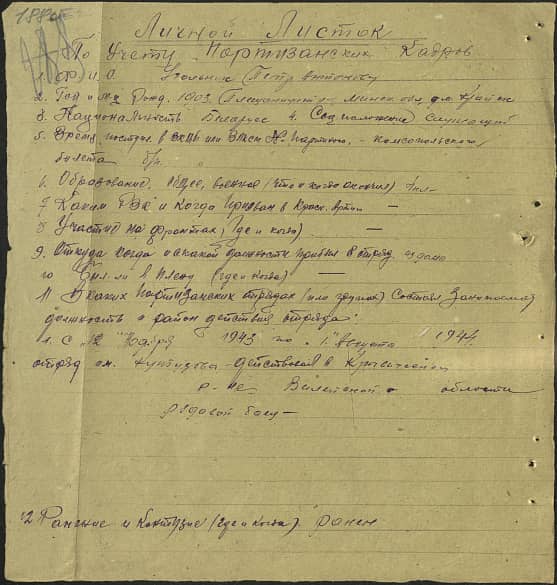 Личной Листок
По Учету Партизанских Кадров
1. Ф.И.О. Петр Антонович
2. Год и 1903
3. Национальность Беларус 4. Соц положение Служащий
5. Время вступл. в или Партию, - комсомольского
билета
6. Образование, общее, военное (что и когда окончил)
7 Каким РВК и когда Призван в Красн. Армию —
8 Участие на фронтах, (где и когда) —
9. Откуда когда и с какой должности прибыл в отряд
10 Был ли в плену (где и когда) —
11 В каких Партизанских отрядах (или группах) Состоял Занимаемая
должность и район действия отряда:
1. с "12" 1943 по "1" Августа 1944.
отряд им. действовал в
р-не Вилейской области
рядовой боец —
12 Ранение и Контузие (где и когда) ранен